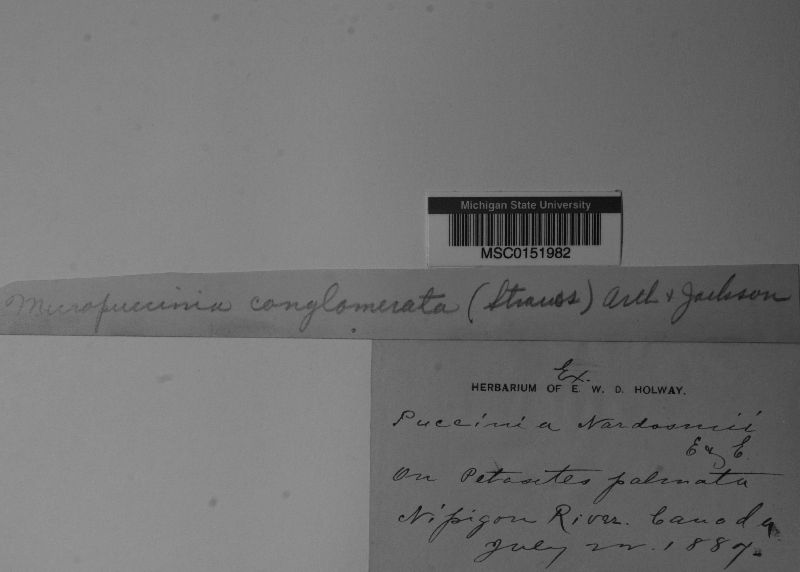 Michigan State University
MSC0151982
Micropuccinia conglomerata (Strauss) Arth & Jackson
Ex.
HERBARIUM OF E. W. D. HOLWAY.
Puccinia Nardosmii
E & E.
On Petasites palmata
Nipigon River. Canada
July 22. 1887.